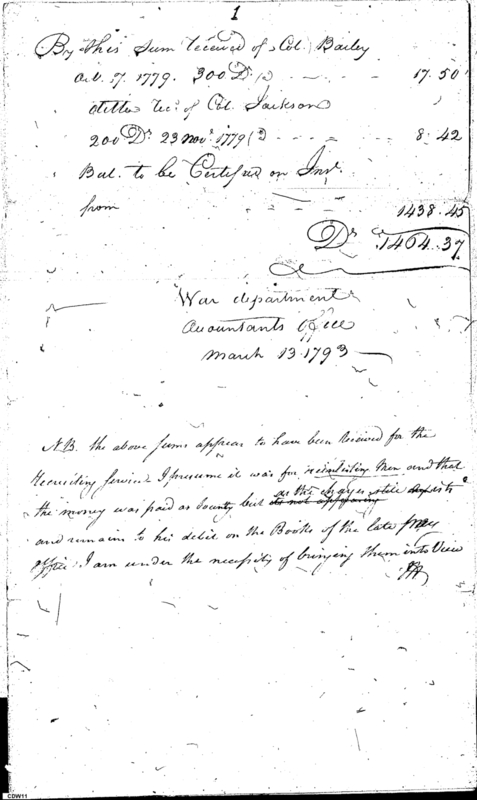 1
By this Sum received of Col. Bailey
Oct. 17. 1779. 300 Drs 17.50
ditto rec. of Col. Jackson
200 Drs 23 Novr. 1779 8.42
Bal. to be Certified on Int.
from 1438.45
Drs 1464.37
War department
Accountants office
March 13. 1793
NB. the above Sums appear to have been Received for the
Recruiting Service I presume it was for reinlisting Men and that
the money was paid as bounty but as the charges still exists
and remains to his debit on the Books of the late pay
office I am under the necessity of bringing them into View
CDW11